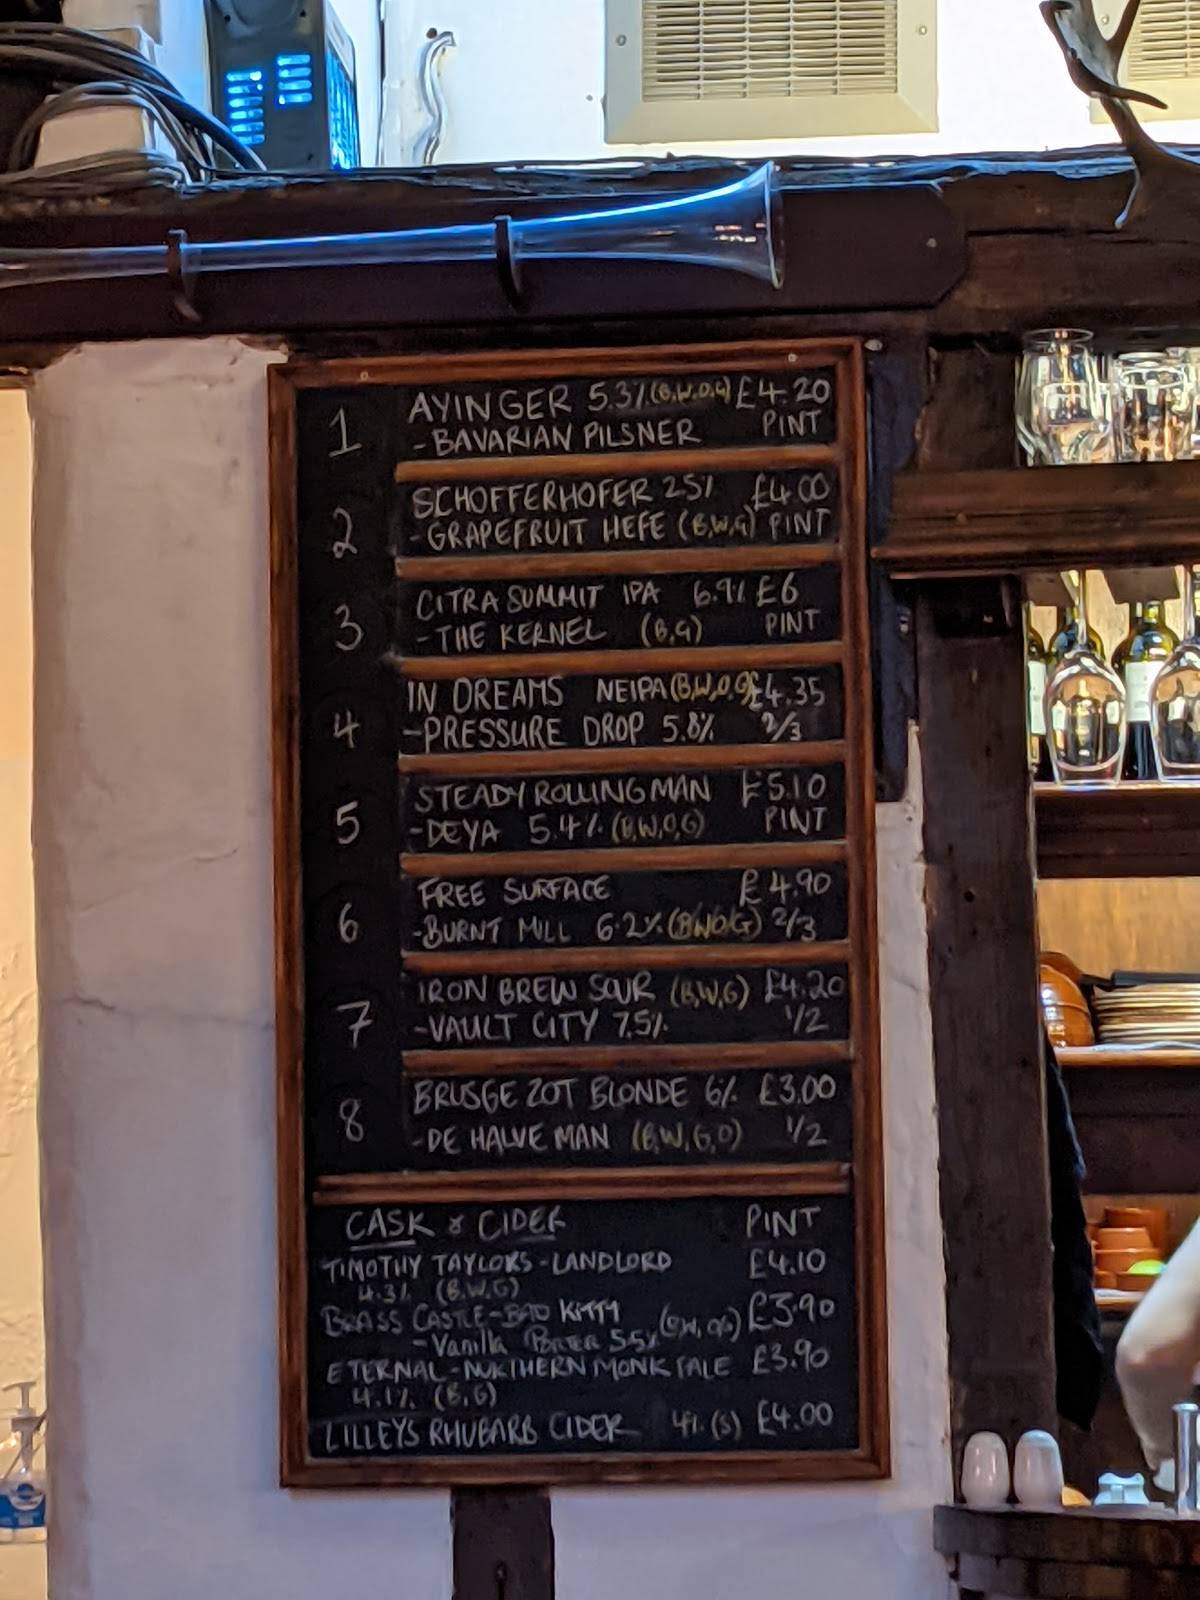 1 AYINGER 5.3% (B,W,O,G) £4.20
- BAVARIAN PILSNER PINT
2 SCHOFFERHOFER 2.5% £4.00
- GRAPEFRUIT HEFE (B,W,G) PINT
3 CITRA SUMMIT IPA 6.9% £6
- THE KERNEL (B,G) PINT
4 IN DREAMS NEIPA (B,W,O,G) £4.35
- PRESSURE DROP 5.8% 2/3
5 STEADY ROLLING MAN £5.10
- DEYA 5.4% (B,W,O,G) PINT
6 FREE SURFACE £4.90
- BURNT MILL 6.2% (BWOG) 2/3
7 IRON BREW SOUR (B,W,G) £4.20
- VAULT CITY 7.5% 1/2
8 BRUSGE ZOT BLONDE 6% £3.00
- DE HALVE MAN (B,W,G,O) 1/2
CASK & CIDER PINT
TIMOTHY TAYLORS - LANDLORD £4.10
4.3% (B.W.G)
BRASS CASTLE - BAD KITTY £3.90
- Vanilla PORTER 5.5%
ETERNAL - NORTHERN MONK PALE £3.90
4.1% (B,G)
LILLEYS RHUBARB CIDER 4% (S) £4.00